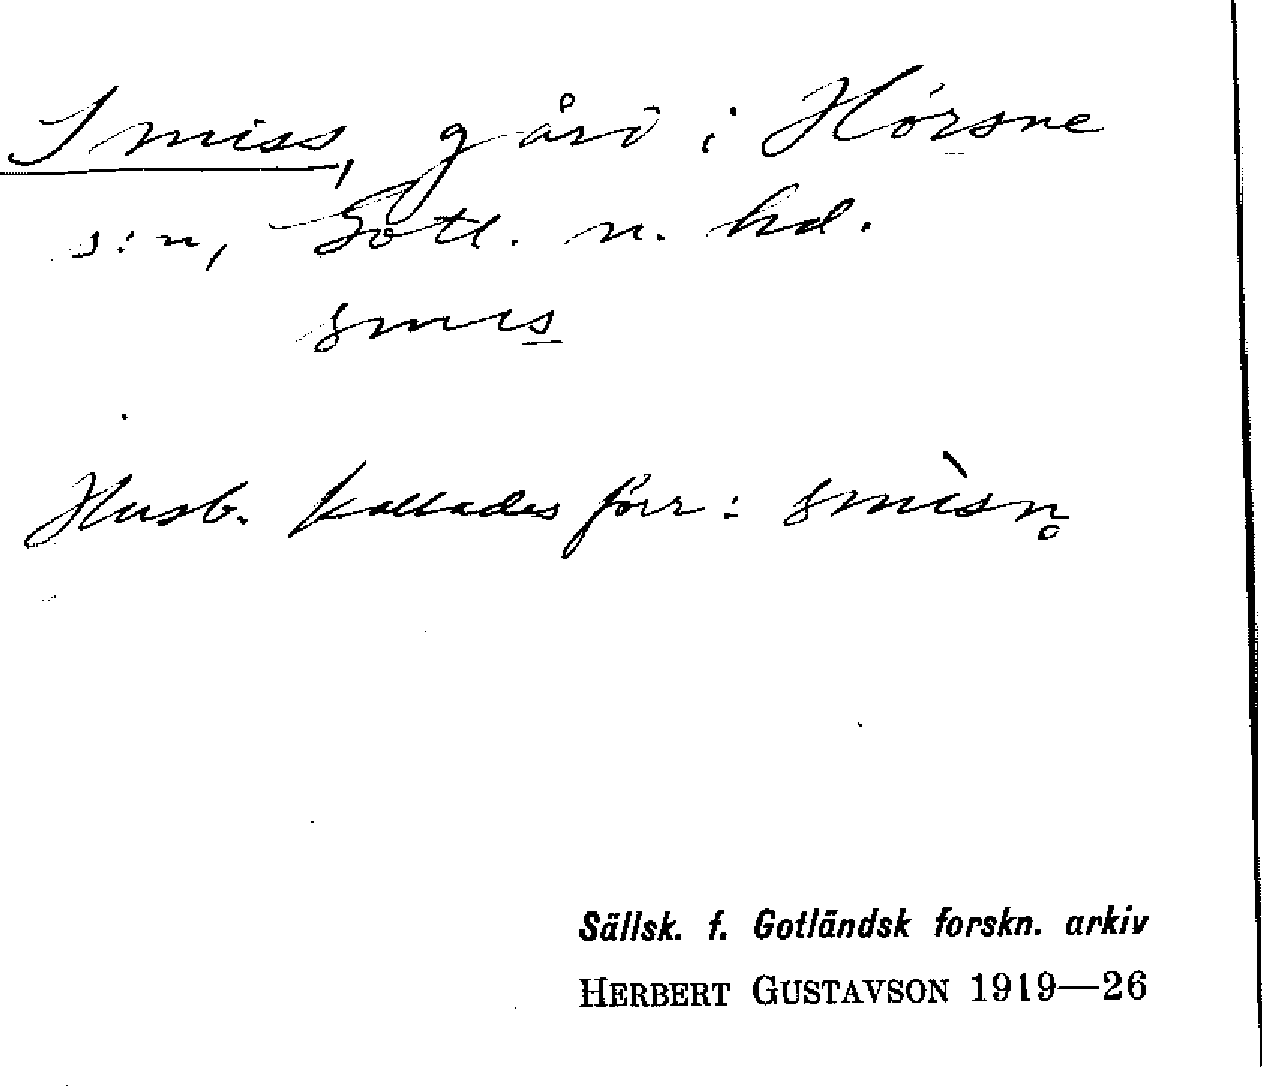 Smiss, gård i Hörsne
s:n, Gotl. n. hd.
smis
Husb. kallades förr: smìsn̥
Sällsk. f. Gotländsk forskn. arkiv
HERBERT GUSTAVSON 1919—26